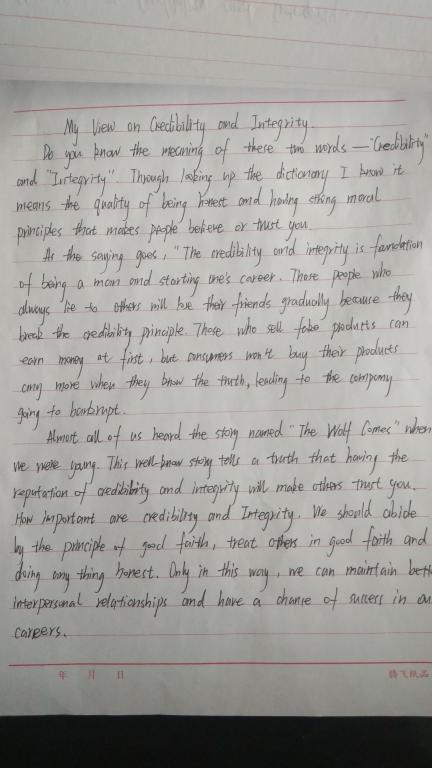 My View on Credibility and Integrity.
Do you know the meaning of these two words — "Credibility"
and "Integrity". Through looking up the dictionary I know it
means the quality of being honest and having strong moral
principles that makes people believe or trust you.
As the saying goes, "The credibility and integrity is foundation
of being a man and starting one's career. Those people who
always lie to others will lose their friends gradually because they
break the credibility principle. Those who sell fake products can
earn money at first, but consumers won't buy their products
any more when they know the truth, leading to the company
going to bankrupt.
Almost all of us heard the story named "The Wolf Comes" when
we were young. This well-know story tells a truth that having the
reputation of credibility and integrity will make others trust you.
How important are credibility and Integrity. We should abide
by the principle of good faith, treat others in good faith and
doing any thing honest. Only in this way, we can maintain bett
interpersonal relationships and have a chance of success in ou
careers.
年 月 日
腾飞纸品